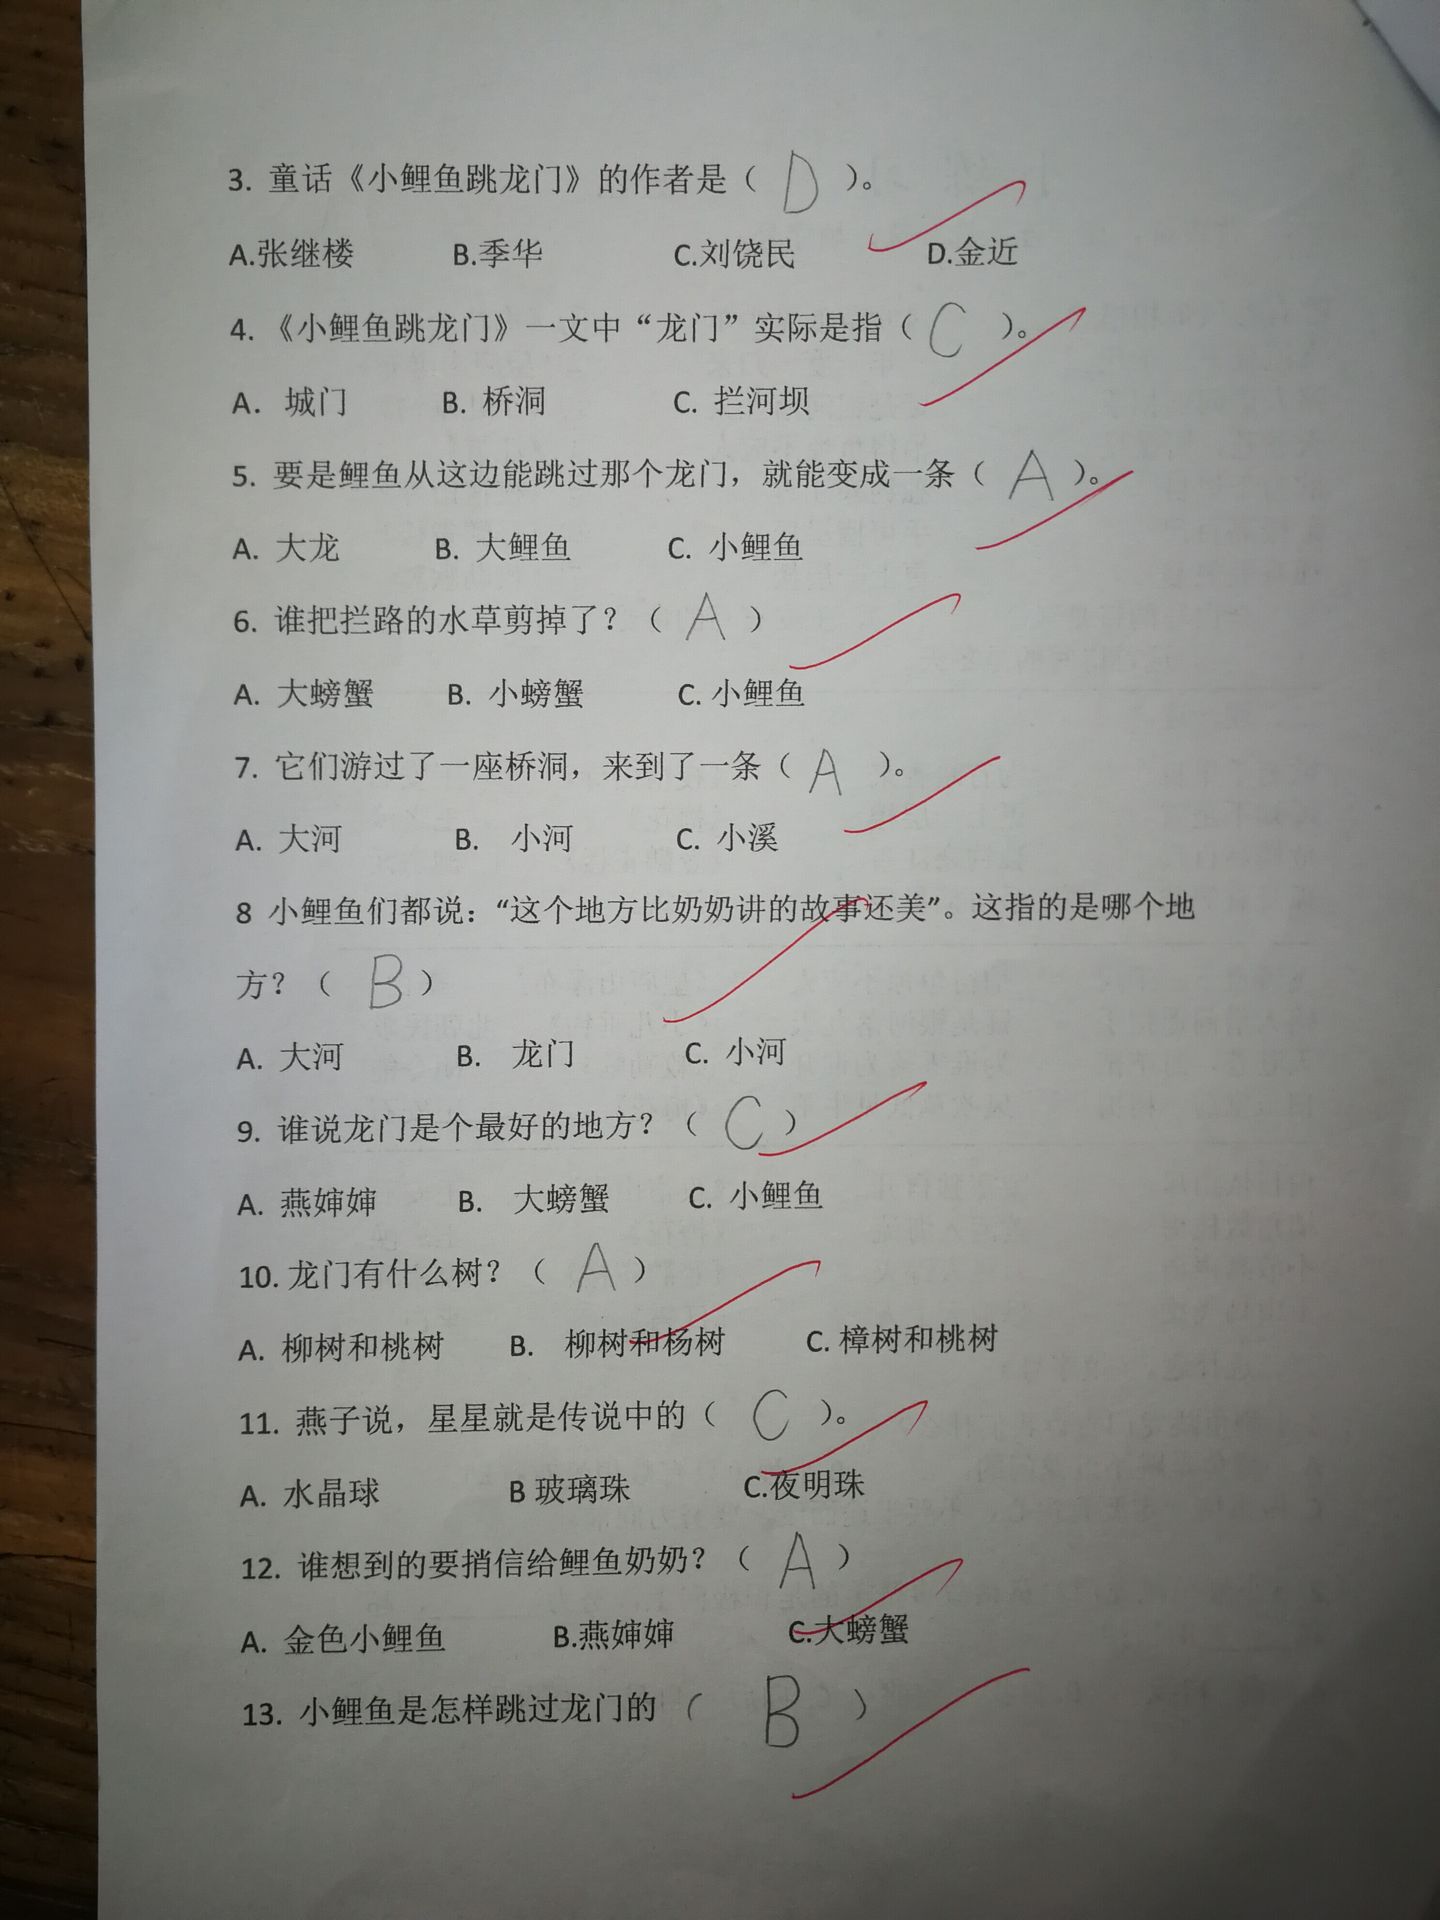 3. 童话《小鲤鱼跳龙门》的作者是（ D ）。
A.张继楼 B.季华 C.刘饶民 D.金近
4.《小鲤鱼跳龙门》一文中“龙门”实际是指（ C ）。
A. 城门 B. 桥洞 C. 拦河坝
5. 要是鲤鱼从这边能跳过那个龙门，就能变成一条（ A ）。
A. 大龙 B. 大鲤鱼 C. 小鲤鱼
6. 谁把拦路的水草剪掉了？（ A ）
A. 大螃蟹 B. 小螃蟹 C. 小鲤鱼
7. 它们游过了一座桥洞，来到了一条（ A ）。
A. 大河 B. 小河 C. 小溪
8 小鲤鱼们都说：“这个地方比奶奶讲的故事还美”。这指的是哪个地
方？（ B ）
A. 大河 B. 龙门 C. 小河
9. 谁说龙门是个最好的地方？（ C ）
A. 燕婶婶 B. 大螃蟹 C. 小鲤鱼
10. 龙门有什么树？（ A ）
A. 柳树和桃树 B. 柳树和杨树 C. 樟树和桃树
11. 燕子说，星星就是传说中的（ C ）。
A. 水晶球 B 玻璃珠 C.夜明珠
12. 谁想到的要捎信给鲤鱼奶奶？（ A ）
A. 金色小鲤鱼 B.燕婶婶 C.大螃蟹
13. 小鲤鱼是怎样跳过龙门的（ B ）